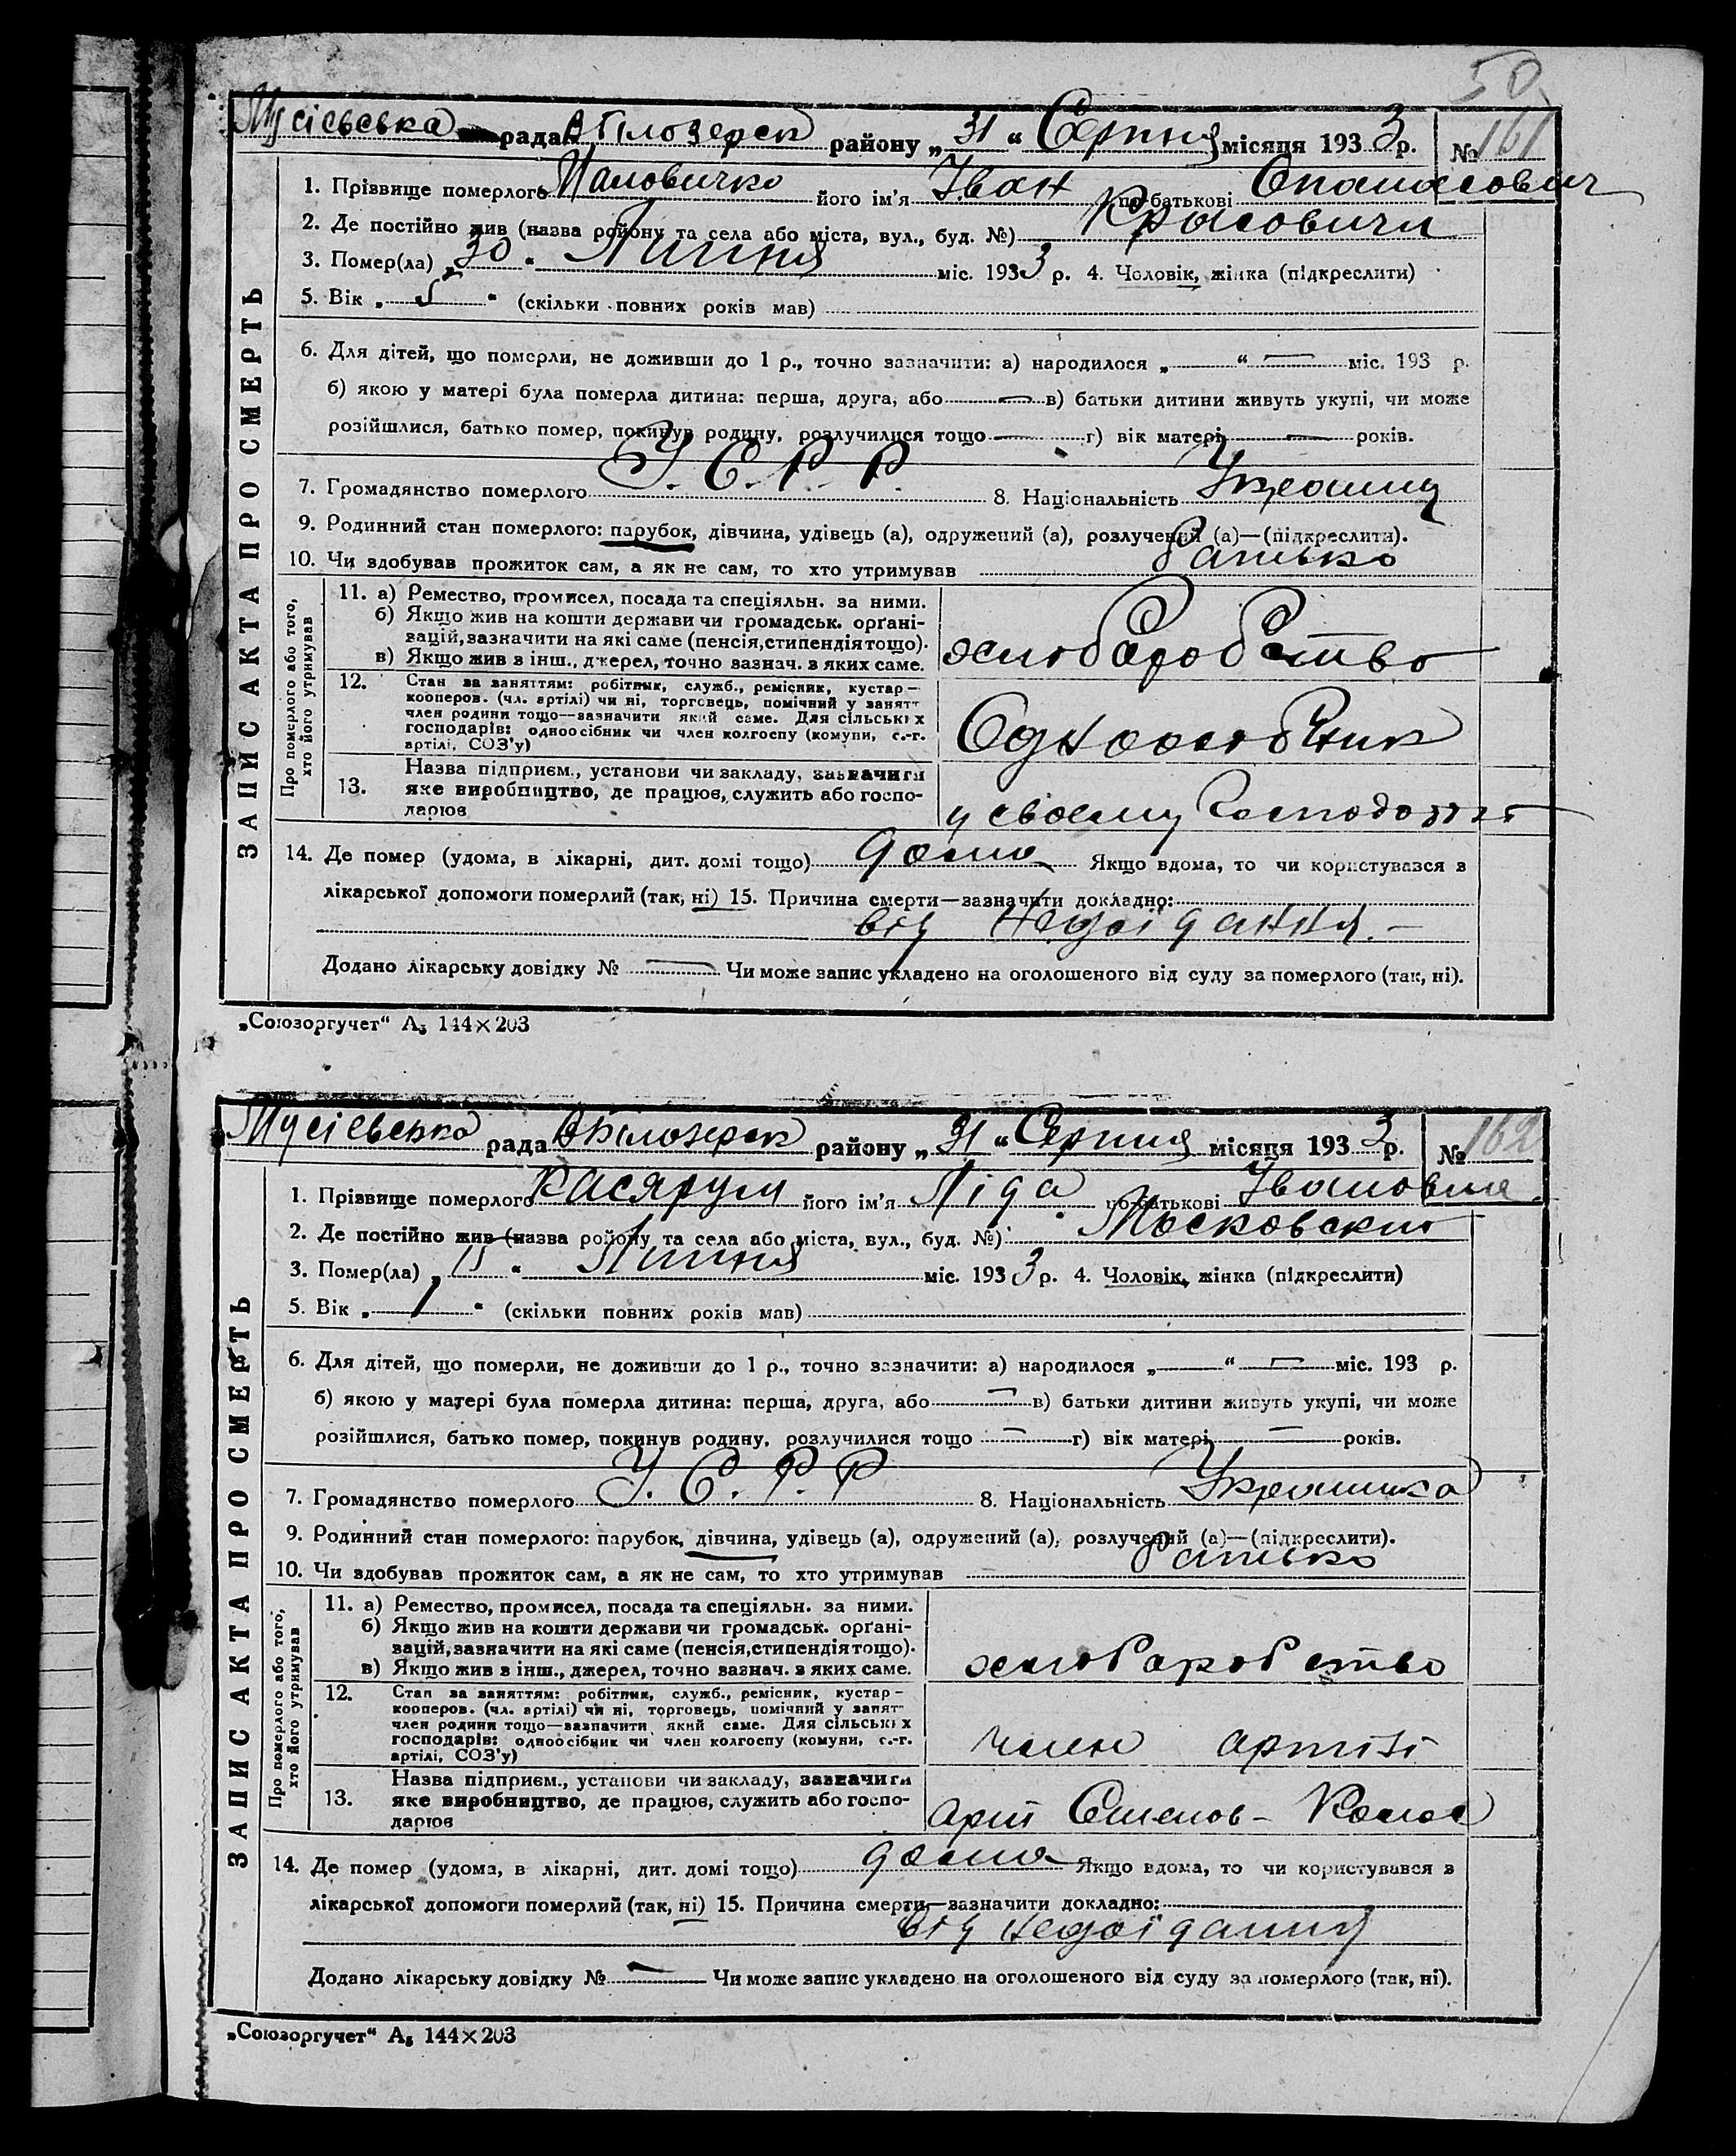 50
Мусієвська рада В Білозерск району „ 31 “ Серпня місяця 193 3 р. № 161
1. Прізвище померлого його ім'я Іван по батькові Опанасович
2. Де постійно жив (назва району та села або міста, вул., буд. №)
3. Помер(ла) „ 30 “ Липня міс. 193 3 р. 4. Чоловік, жінка (підкреслити)
5. Вік „ 5 “ (скільки повних років мав)
6. Для дітей, що померли, не доживши до 1 р., точно зазначити: а) народилося „ — “ — міс. 193 р.
б) якою у матері була померла дитина: перша, друга, або — в) батьки дитини живуть укупі, чи може
розійшлися, батько помер, покинув родину, розлучилися тощо — г) вік матері — років.
7. Громадянство померлого У.С.Р.Р. 8. Національність Українец
9. Родинний стан померлого: парубок, дівчина, удівець (а), одружений (а), розлучений (а)—(підкреслити).
10. Чи здобував прожиток сам, а як не сам, то хто утримував Батько
ЗАПИС АКТА ПРО СМЕРТЬ
Про померлого або того, хто його утримував
11. а) Ремество, промисел, посада та спеціяльн. за ними.
б) Якщо жив на кошти держави чи громадськ. орґані-
зацій, зазначити на які саме (пенсія, стипендія тощо).
в) Якщо жив з інш., джерел, точно зазнач. з яких саме.
хліборобство
12. Стан за заняттям: робітник, служб., ремісник, кустар—
кооперов. (чл. артілі) чи ні, торговець, помічний у занятт
член родини тощо—зазначити який саме. Для сільських
господарів: одноосібник чи член колгоспу (комуни, с.-г.
артілі, СОЗ'у)
Одноособник
13. Назва підприєм., установи чи закладу, зазначити
яке виробництво, де працює, служить або госпо-
дарює
у своему
14. Де помер (удома, в лікарні, дит. домі тощо) дома Якщо вдома, то чи користувався з
лікарської допомоги померлий (так, ні) 15. Причина смерти—зазначити докладно:
від недоїдання. —
Додано лікарську довідку № — Чи може запис укладено на оголошеного від суду за померлого (так, ні).
„Союзоргучет“ А5 144×203
Мусієвська рада В Білозерск району „ 31 “ Серпня місяця 193 3 р. № 162
1. Прізвище померлого Касярум його ім'я Ліда по батькові Івановна
2. Де постійно жив (назва району та села або міста, вул., буд. №)
3. Помер(ла) „ 15 “ Липня міс. 193 3 р. 4. Чоловік, жінка (підкреслити)
5. Вік „ 1 “ (скільки повних років мав)
6. Для дітей, що померли, не доживши до 1 р., точно зазначити: а) народилося „ — “ — міс. 193 р.
б) якою у матері була померла дитина: перша, друга, або — в) батьки дитини живуть укупі, чи може
розійшлися, батько помер, покинув родину, розлучилися тощо — г) вік матері — років.
7. Громадянство померлого У.С.Р.Р 8. Національність Українка
9. Родинний стан померлого: парубок, дівчина, удівець (а), одружений (а), розлучений (а)—(підкреслити).
10. Чи здобував прожиток сам, а як не сам, то хто утримував Батько
ЗАПИС АКТА ПРО СМЕРТЬ
Про померлого або того, хто його утримував
11. а) Ремество, промисел, посада та спеціяльн. за ними.
б) Якщо жив на кошти держави чи громадськ. орґані-
зацій, зазначити на які саме (пенсія, стипендія тощо).
в) Якщо жив з інш., джерел, точно зазнач. з яких саме.
хліборобство
12. Стан за заняттям: робітник, служб., ремісник, кустар—
кооперов. (чл. артілі) чи ні, торговець, помічний у занятт
член родини тощо—зазначити який саме. Для сільських
господарів: одноосібник чи член колгоспу (комуни, с.-г.
артілі, СОЗ'у)
член артілі
13. Назва підприєм., установи чи закладу, зазначити
яке виробництво, де працює, служить або госпо-
дарює
арт
14. Де помер (удома, в лікарні, дит. домі тощо) дома Якщо вдома, то чи користувався з
лікарської допомоги померлий (так, ні) 15. Причина смерти—зазначити докладно:
від недоїдання
Додано лікарську довідку № — Чи може запис укладено на оголошеного від суду за померлого (так, ні).
„Союзоргучет“ А5 144×203